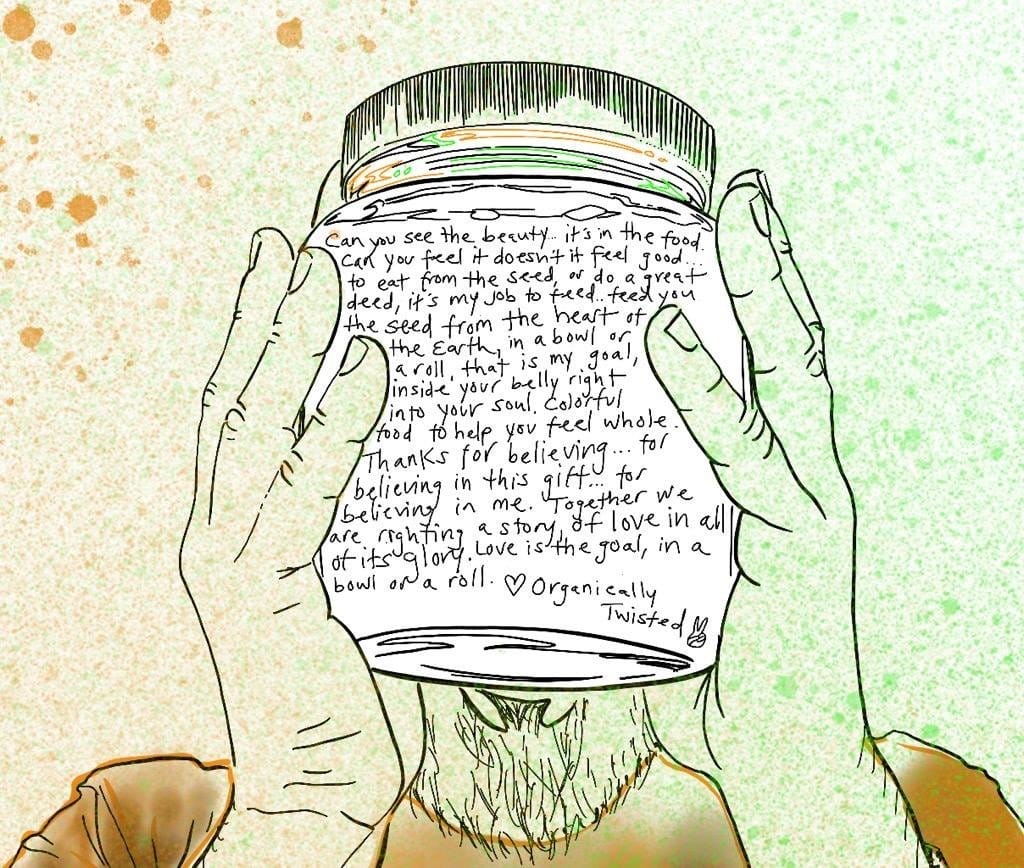 Can you see the beauty.. it's in the food.
Can you feel it doesn't it feel good...
to eat from the seed, or do a great
deed, it's my job to feed.. feed you
the seed from the heart of
the Earth, in a bowl or
a roll, that is my goal,
inside your belly right
into your soul. Colorful
food to help you feel whole.
Thanks for believing... for
believing in this gift... for
believing in me. Together we
are righting a story, of love in all
of its glory. Love is the goal, in a
bowl or a roll. ♡ Organically
Twisted